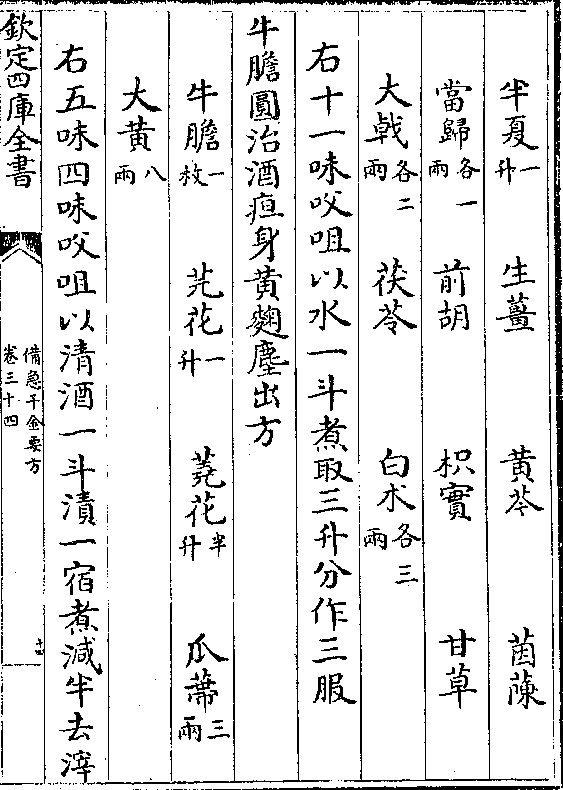 半夏一升 生薑 黃芩 茵蔯
當歸各一兩 前胡 枳實 甘草
大戟各二兩 茯苓 白朮各三兩
右十一味㕮咀以水一斗煮取三升分作三服
牛膽圓治酒疸身黃麴塵出方
牛膽一枚 芫花一升 蕘花半升 瓜蔕三兩
大黃八兩
右五味四味㕮咀以清酒一斗漬一宿煮減半去滓
欽定四庫全書
備急千金要方
卷三十四
十四